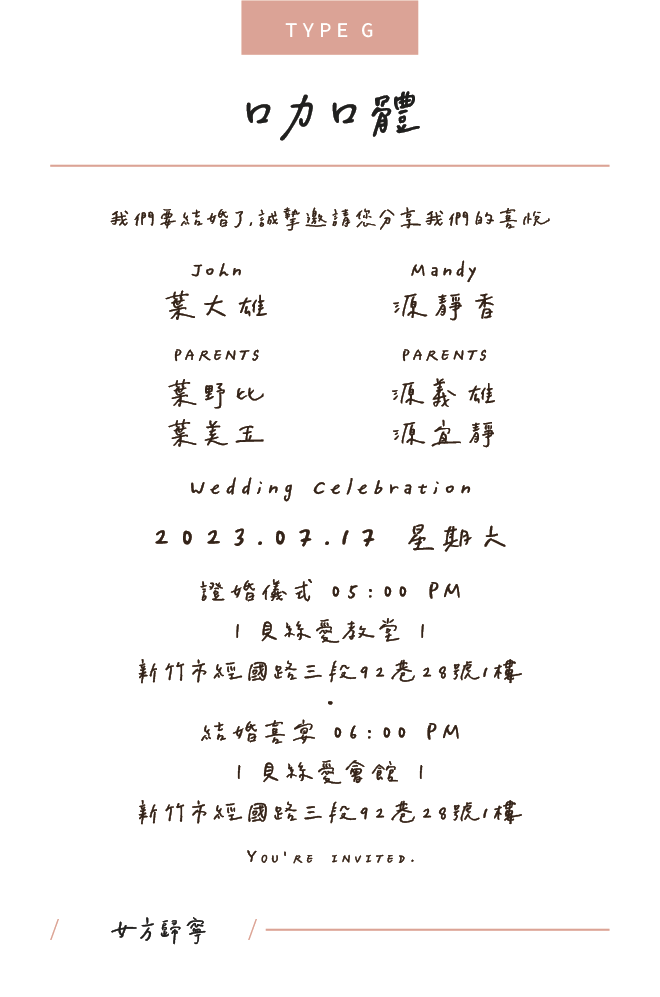 TYPE G
口力口體
我們要結婚了,誠摯邀請您分享我們的喜悅
John Mandy
葉大雄 源靜香
PARENTS PARENTS
葉野比 源義雄
葉美玉 源宜靜
Wedding Celebration
2023.07.17 星期六
證婚儀式 05:00 PM
| 貝絲愛教堂 |
新竹市經國路三段92巷28號1樓
·
結婚喜宴 06:00 PM
| 貝絲愛會館 |
新竹市經國路三段92巷28號1樓
YOU'RE INVITED.
/ 女方歸寧 /